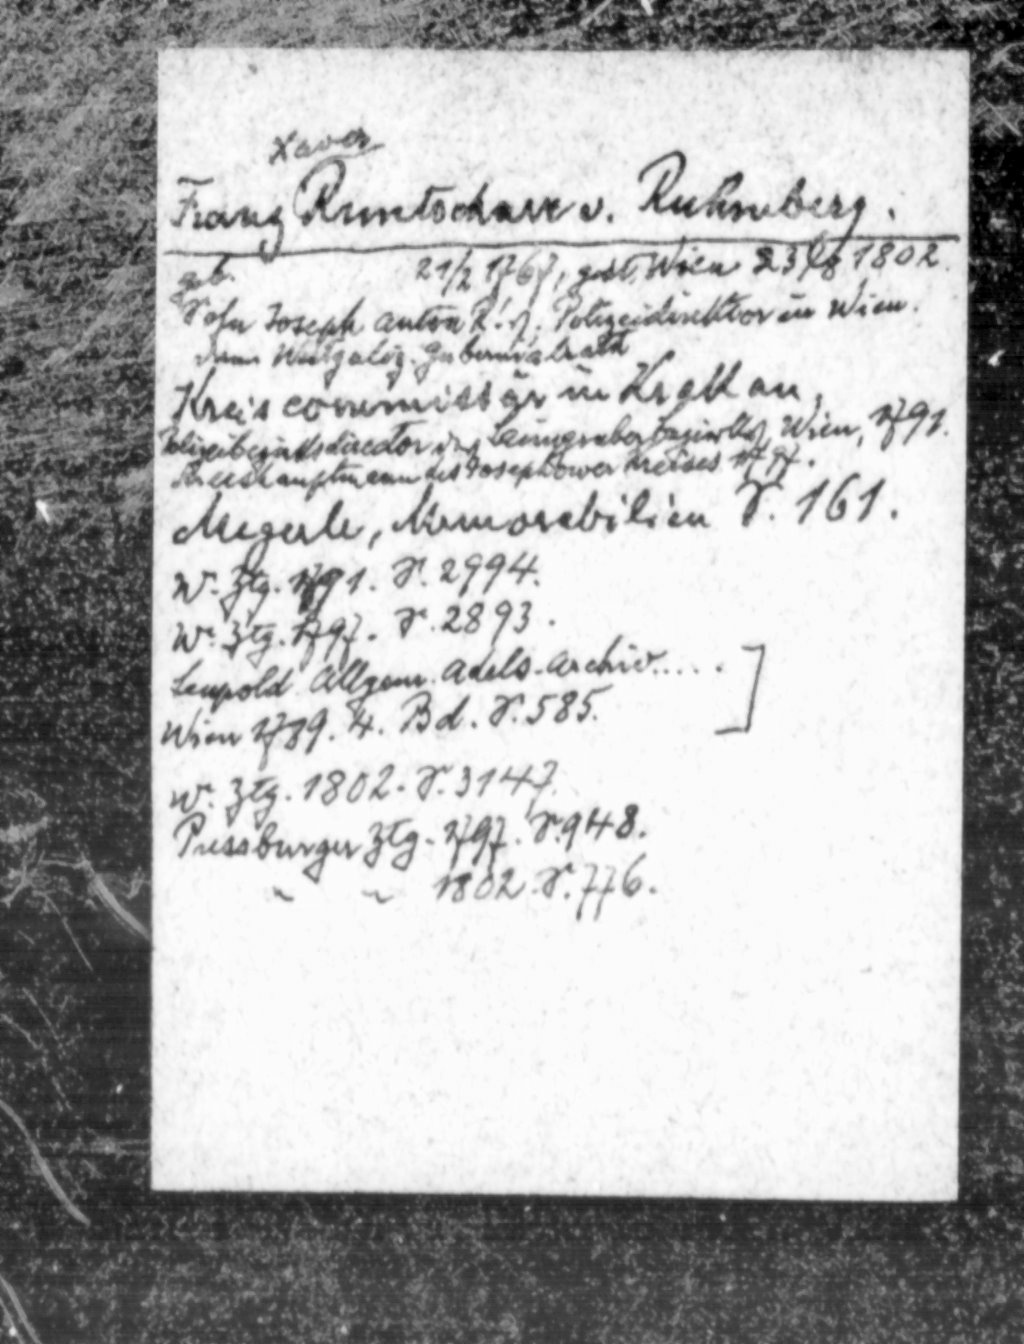 Xaver
Franz Runtschner v. Ruhmberg.
geb. 21/2 1767, gest. Wien 23/8 1802.
Sohn Joseph Anton R.'s. Polizeidirektor in Wien.
dann Westgaliz. Gubernialrath
Kreiscommissär in Krakau,
Polizeibezirksdirector des Laimgruber Bezirkes Wien, 1791.
Kreishauptmann des Josephower Kreises 1797.
Megerle, Memorabilien S. 161.
W. Ztg. 1791. S. 2994.
W. Ztg. 1797. S. 2893.
Leupold Allgem. Adels-Archiv..... ]
Wien 1789. 4. Bd. S. 585.
W. Ztg. 1802. S. 3147.
Pressburger Ztg. 1797. S. 948.
" " 1802. S. 776.